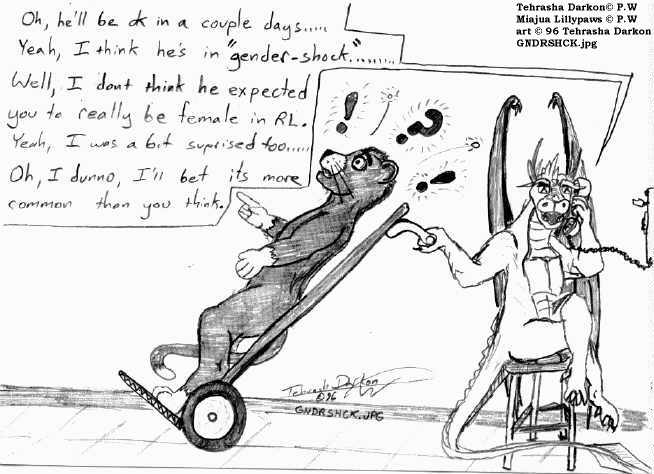 Oh, he'll be ok in a couple days.....
Yeah, I think he's in "gender-shock."........
Well, I dont think he expected
you to really be female in RL.
Yeah, I was a bit suprised too.....
Oh, I dunno, I'll bet its more
common than you think.
Tehrasha Darkon© P.W
Miajua Lillypaws © P.W
art © 96 Tehrasha Darkon
GNDRSHCK.jpg
!
?
!
Tehrasha Darkon
©96
GNDRSHCK.JPG